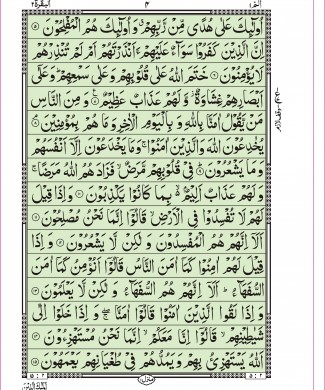 البقرة ٢
٣
الٓمّٓ ١
اُولٰٓئِكَ عَلٰى هُدًى مِّنْ رَّبِّهِمْ ۙ وَ اُولٰٓئِكَ هُمُ الْمُفْلِحُوْنَ ۵
اِنَّ الَّذِيْنَ كَفَرُوْا سَوَآءٌ عَلَيْهِمْ ءَاَنْذَرْتَهُمْ اَمْ لَمْ تُنْذِرْهُمْ
لَا يُؤْمِنُوْنَ ۶ خَتَمَ اللّٰهُ عَلٰى قُلُوْبِهِمْ وَ عَلٰى سَمْعِهِمْ ؕ وَ عَلٰۤى
اَبْصَارِهِمْ غِشَاوَةٌ ؗ وَّ لَهُمْ عَذَابٌ عَظِيْمٌ ۷ وَ مِنَ النَّاسِ
مَنْ يَّقُوْلُ اٰمَنَّا بِاللّٰهِ وَ بِالْيَوْمِ الْاٰخِرِ وَ مَا هُمْ بِمُؤْمِنِيْنَ ۘ ۸
يُخٰدِعُوْنَ اللّٰهَ وَ الَّذِيْنَ اٰمَنُوْا ۚ وَ مَا يَخْدَعُوْنَ اِلَّاۤ اَنْفُسَهُمْ
وَ مَا يَشْعُرُوْنَ ؕ ۹ فِيْ قُلُوْبِهِمْ مَّرَضٌ ۙ فَزَادَهُمُ اللّٰهُ مَرَضًا ۚ
وَ لَهُمْ عَذَابٌ اَلِيْمٌۢ ۙ بِمَا كَانُوْا يَكْذِبُوْنَ ۱۰ وَ اِذَا قِيْلَ
لَهُمْ لَا تُفْسِدُوْا فِي الْاَرْضِ ۙ قَالُوْۤا اِنَّمَا نَحْنُ مُصْلِحُوْنَ ۱۱
اَلَاۤ اِنَّهُمْ هُمُ الْمُفْسِدُوْنَ وَ لٰكِنْ لَّا يَشْعُرُوْنَ ۱۲ وَ اِذَا
قِيْلَ لَهُمْ اٰمِنُوْا كَمَاۤ اٰمَنَ النَّاسُ قَالُوْۤا اَنُؤْمِنُ كَمَاۤ اٰمَنَ
السُّفَهَآءُ ؕ اَلَاۤ اِنَّهُمْ هُمُ السُّفَهَآءُ وَ لٰكِنْ لَّا يَعْلَمُوْنَ ۱۳
وَ اِذَا لَقُوا الَّذِيْنَ اٰمَنُوْا قَالُوْۤا اٰمَنَّا ۖۚ وَ اِذَا خَلَوْا اِلٰى
شَيٰطِيْنِهِمْ ۙ قَالُوْۤا اِنَّا مَعَكُمْ ۙ اِنَّمَا نَحْنُ مُسْتَهْزِءُوْنَ ۱۴
اَللّٰهُ يَسْتَهْزِئُ بِهِمْ وَ يَمُدُّهُمْ فِيْ طُغْيَانِهِمْ يَعْمَهُوْنَ ۱۵
منزل ١